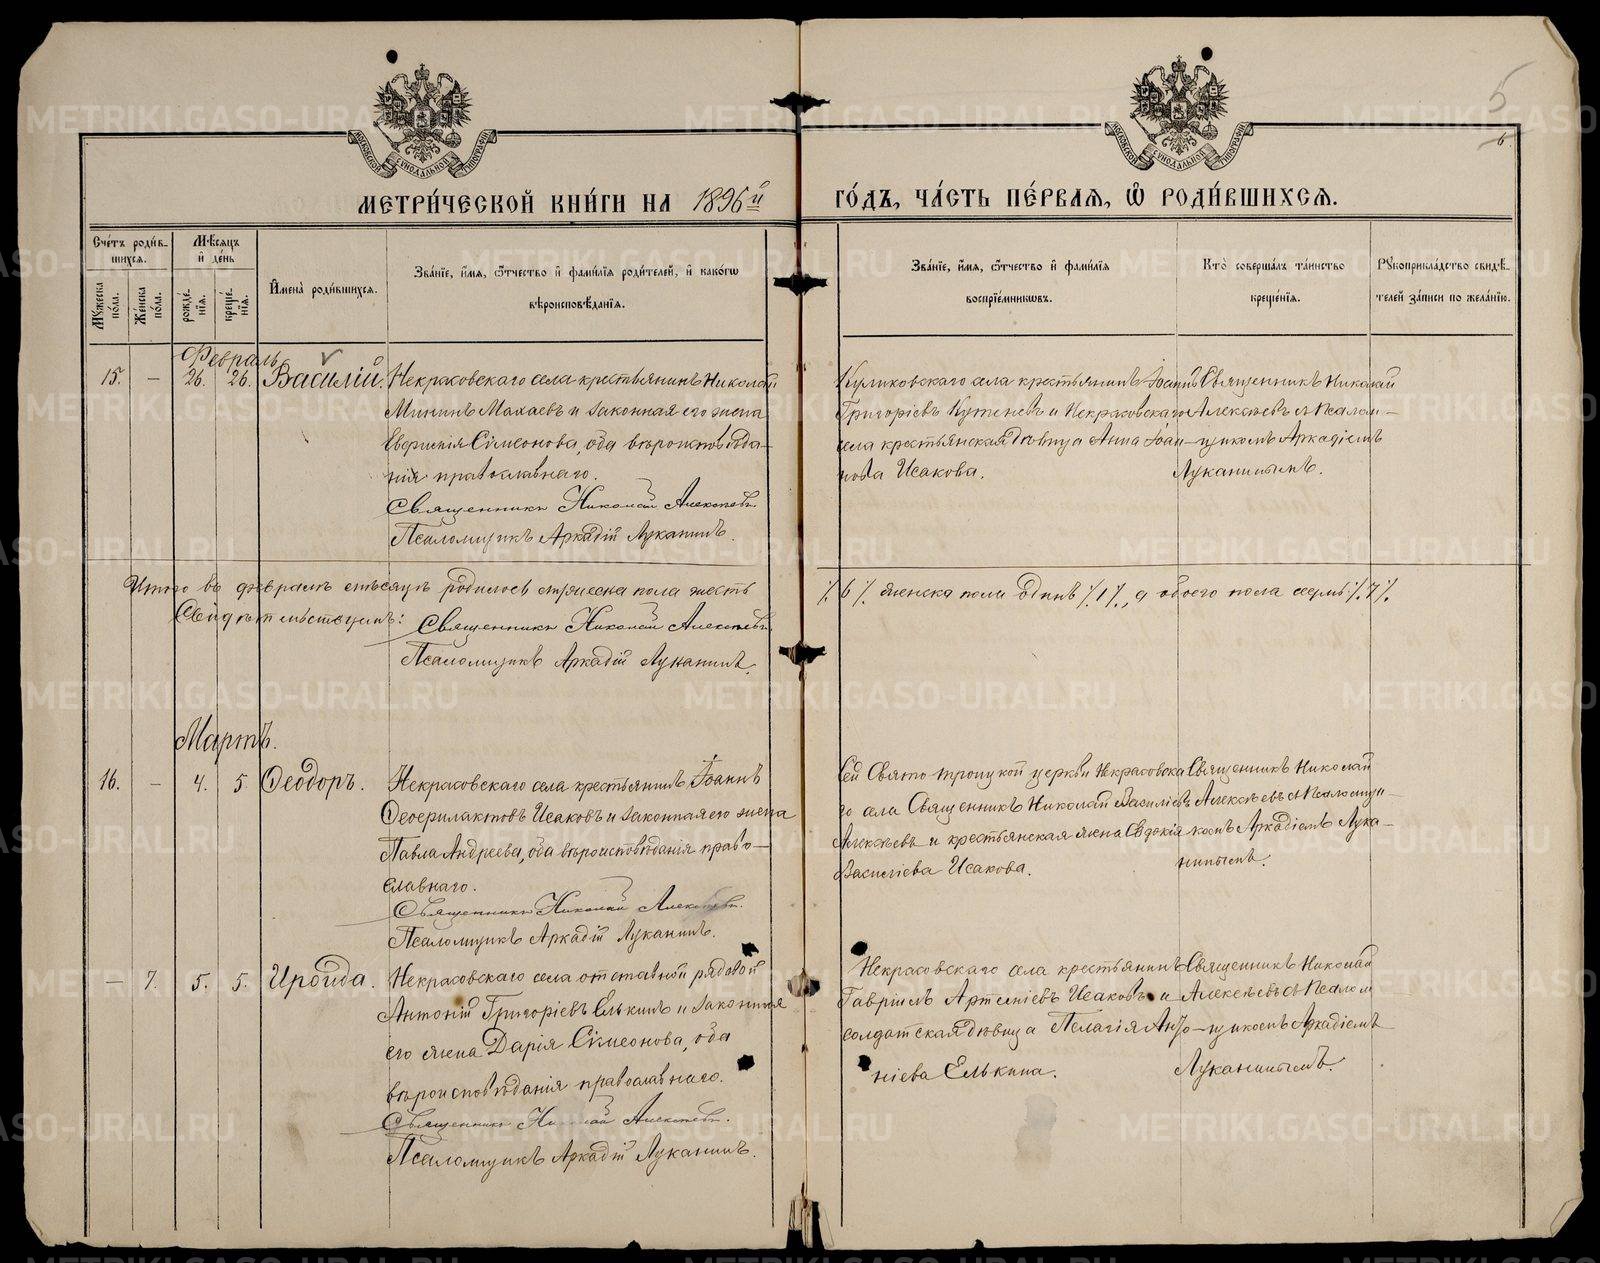 5
6.
МОСКОВСКОЙ СУНОДАЛЬНОЙ ТИПОГРАФІИ
МОСКОВСКОЙ СУНОДАЛЬНОЙ ТИПОГРАФІИ
МЕТРИ́ЧЕСКОЙ КНИ́ГИ НА 1896й ГО́ДЪ, ЧА́СТЬ ПЕ́РВАѦ, Ѡ РОДИ́ВШИХСѦ.
Сче́тъ роди́в-
шихсѧ.
Мꙋжеска по́ла.
Же́нска по́ла.
Мѣ́сѧцъ
и де́нь
рожде́-
нїѧ.
креще́-
нїѧ.
Имена̀ роди́вшихсѧ.
Зва́нїе, и́мѧ, ѻ́тчество и фами́лїѧ роди́телей, и како́гѡ
вѣроисповѣ́данїѧ.
Зва́нїе, и́мѧ, ѻ́тчество и фами́лїѧ
воспрїе́мникѡвъ.
Кто̀ соверша́лъ та́инство
креще́нїѧ.
Рꙋкоприкла́дство свидѣ́-
телей за́писи по жела́нїю.
Февраль
15. — 26. 26. Василій.
Некрасовскаго села крестьянинъ Николай
Мининъ Махаевъ и законная его жена
Сѵмеонова, оба вѣроисповѣда-
нія православнаго.
Священникъ Николай Алексѣевъ.
Псаломщикъ Аркадій Луканинъ.
Куликовскаго села крестьянинъ Іоаннъ
Григоріевъ и Некрасовскаго
села крестьянская дѣвица Анна Іоан-
нова Исакова.
Священникъ Николай
Алексѣевъ съ псалом-
щикомъ Аркадіемъ
Луканинымъ.
Итого въ февралѣ мѣсяцѣ родилось мужеска пола шесть ٪ 6 ٪. женска пола одинъ ٪ 1 ٪., а обоего пола семь ٪ 7 ٪.
Священникъ Николай Алексѣевъ.
Псаломщикъ Аркадій Луканинъ.
Мартъ.
16. — 4. 5 Ѳеодоръ.
Некрасовскаго села крестьянинъ Іоаннъ
Ѳеофилактовъ Исаковъ и законная его жена
Павла Андреева, оба вѣроисповѣданія право-
славнаго.
Священникъ Николай Алексѣевъ.
Псаломщикъ Аркадій Луканинъ.
Свято троицкой церкви Некрасовска
го села Священникъ Николай Василіевъ
Алексѣевъ и крестьянская жена Евдокія
Василіева Исакова.
Священникъ Николай
Алексѣевъ съ псаломщи-
комъ Аркадіемъ Лука-
нинымъ.
— 7. 5. 5. Ироида.
Некрасовскаго села отставной рядовой
Антоній Григоріевъ Елькинъ и законная
его жена Дарія Сѵмеонова, оба
вѣроисповѣданія православнаго.
Священникъ Николай Алексѣевъ.
Псаломщикъ Аркадій Луканинъ.
Некрасовскаго села крестьянинъ
Гавріилъ Артеміевъ Исаковъ и
солдатская дѣвица Пелагія Анто-
ніева Елькина.
Священникъ Николай
Алексѣевъ съ псалом
щикомъ Аркадіемъ
Луканинымъ.
METRIKI.GASO-URAL.RU